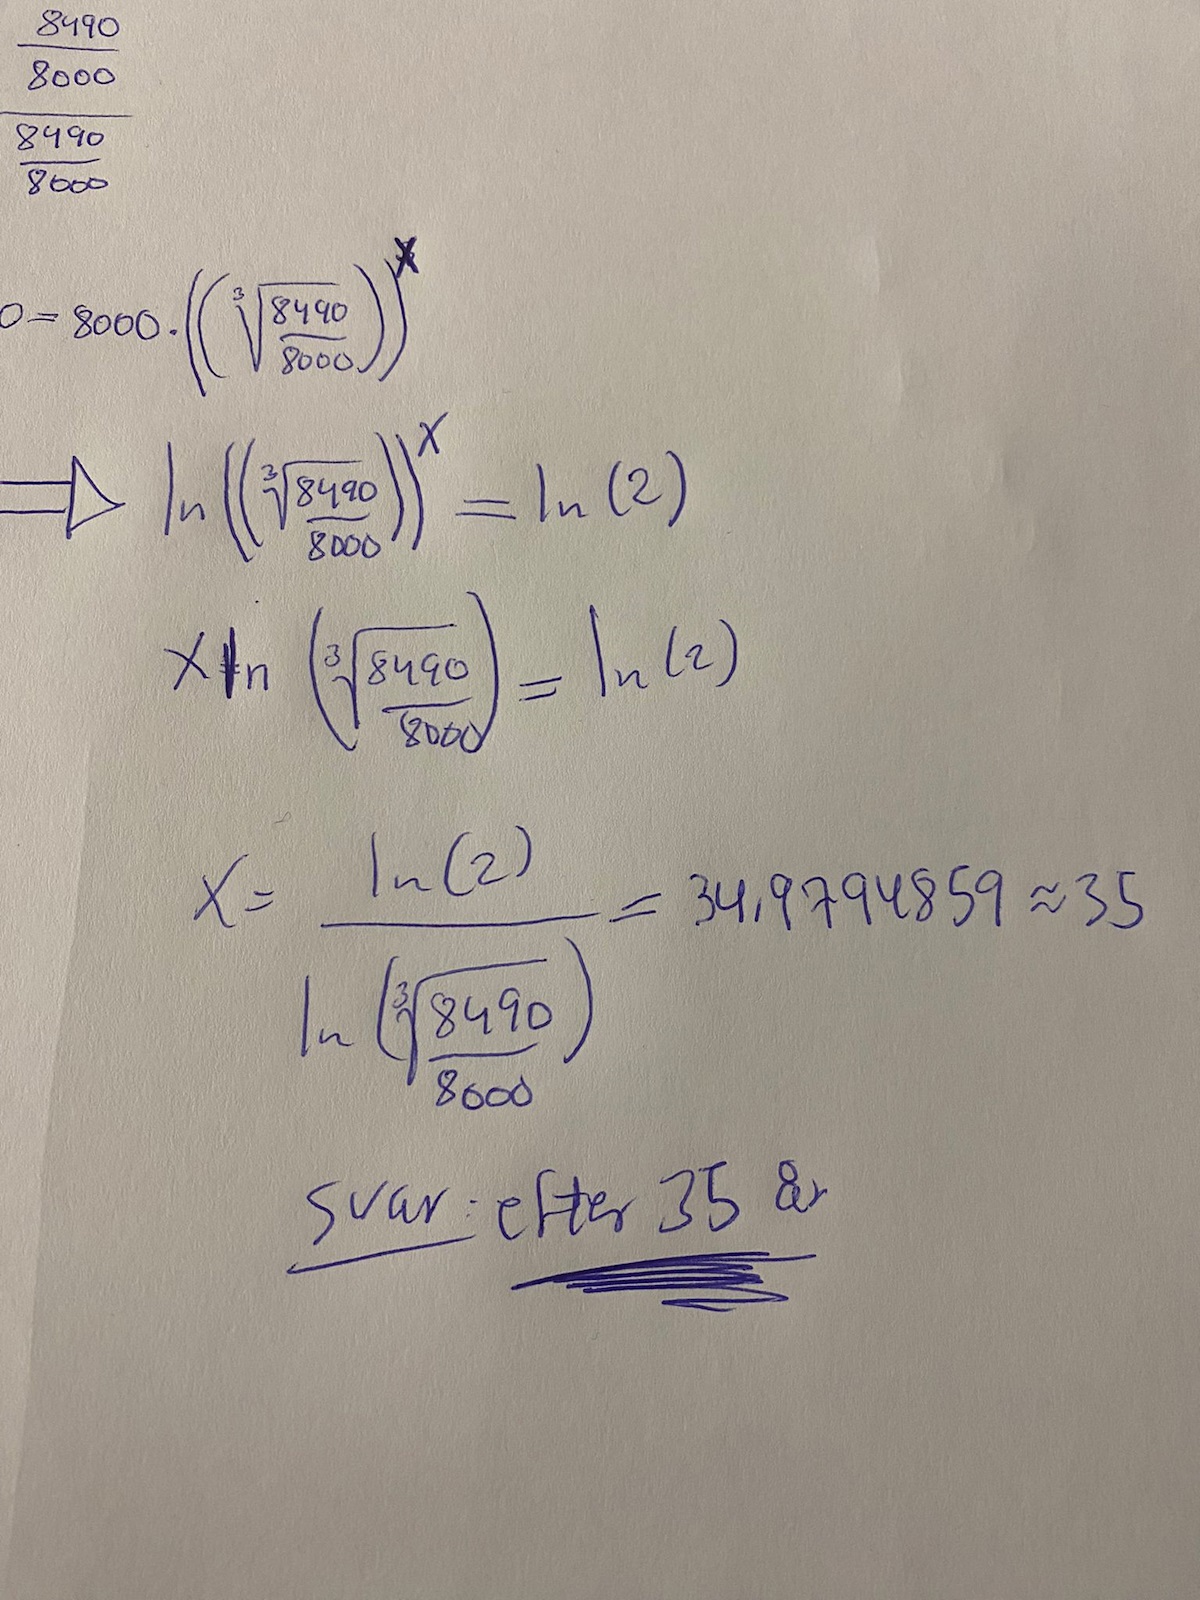 8490
8000
8490
8000
0 = 8000 · ((∛(8490/8000)))^x
⇒ ln((∛(8490/8000)))^x = ln(2)
x ln (∛(8490/8000)) = ln(2)
x = ln(2) / ln(∛(8490/8000)) = 34,9794859 ≈ 35
svar: efter 35 år